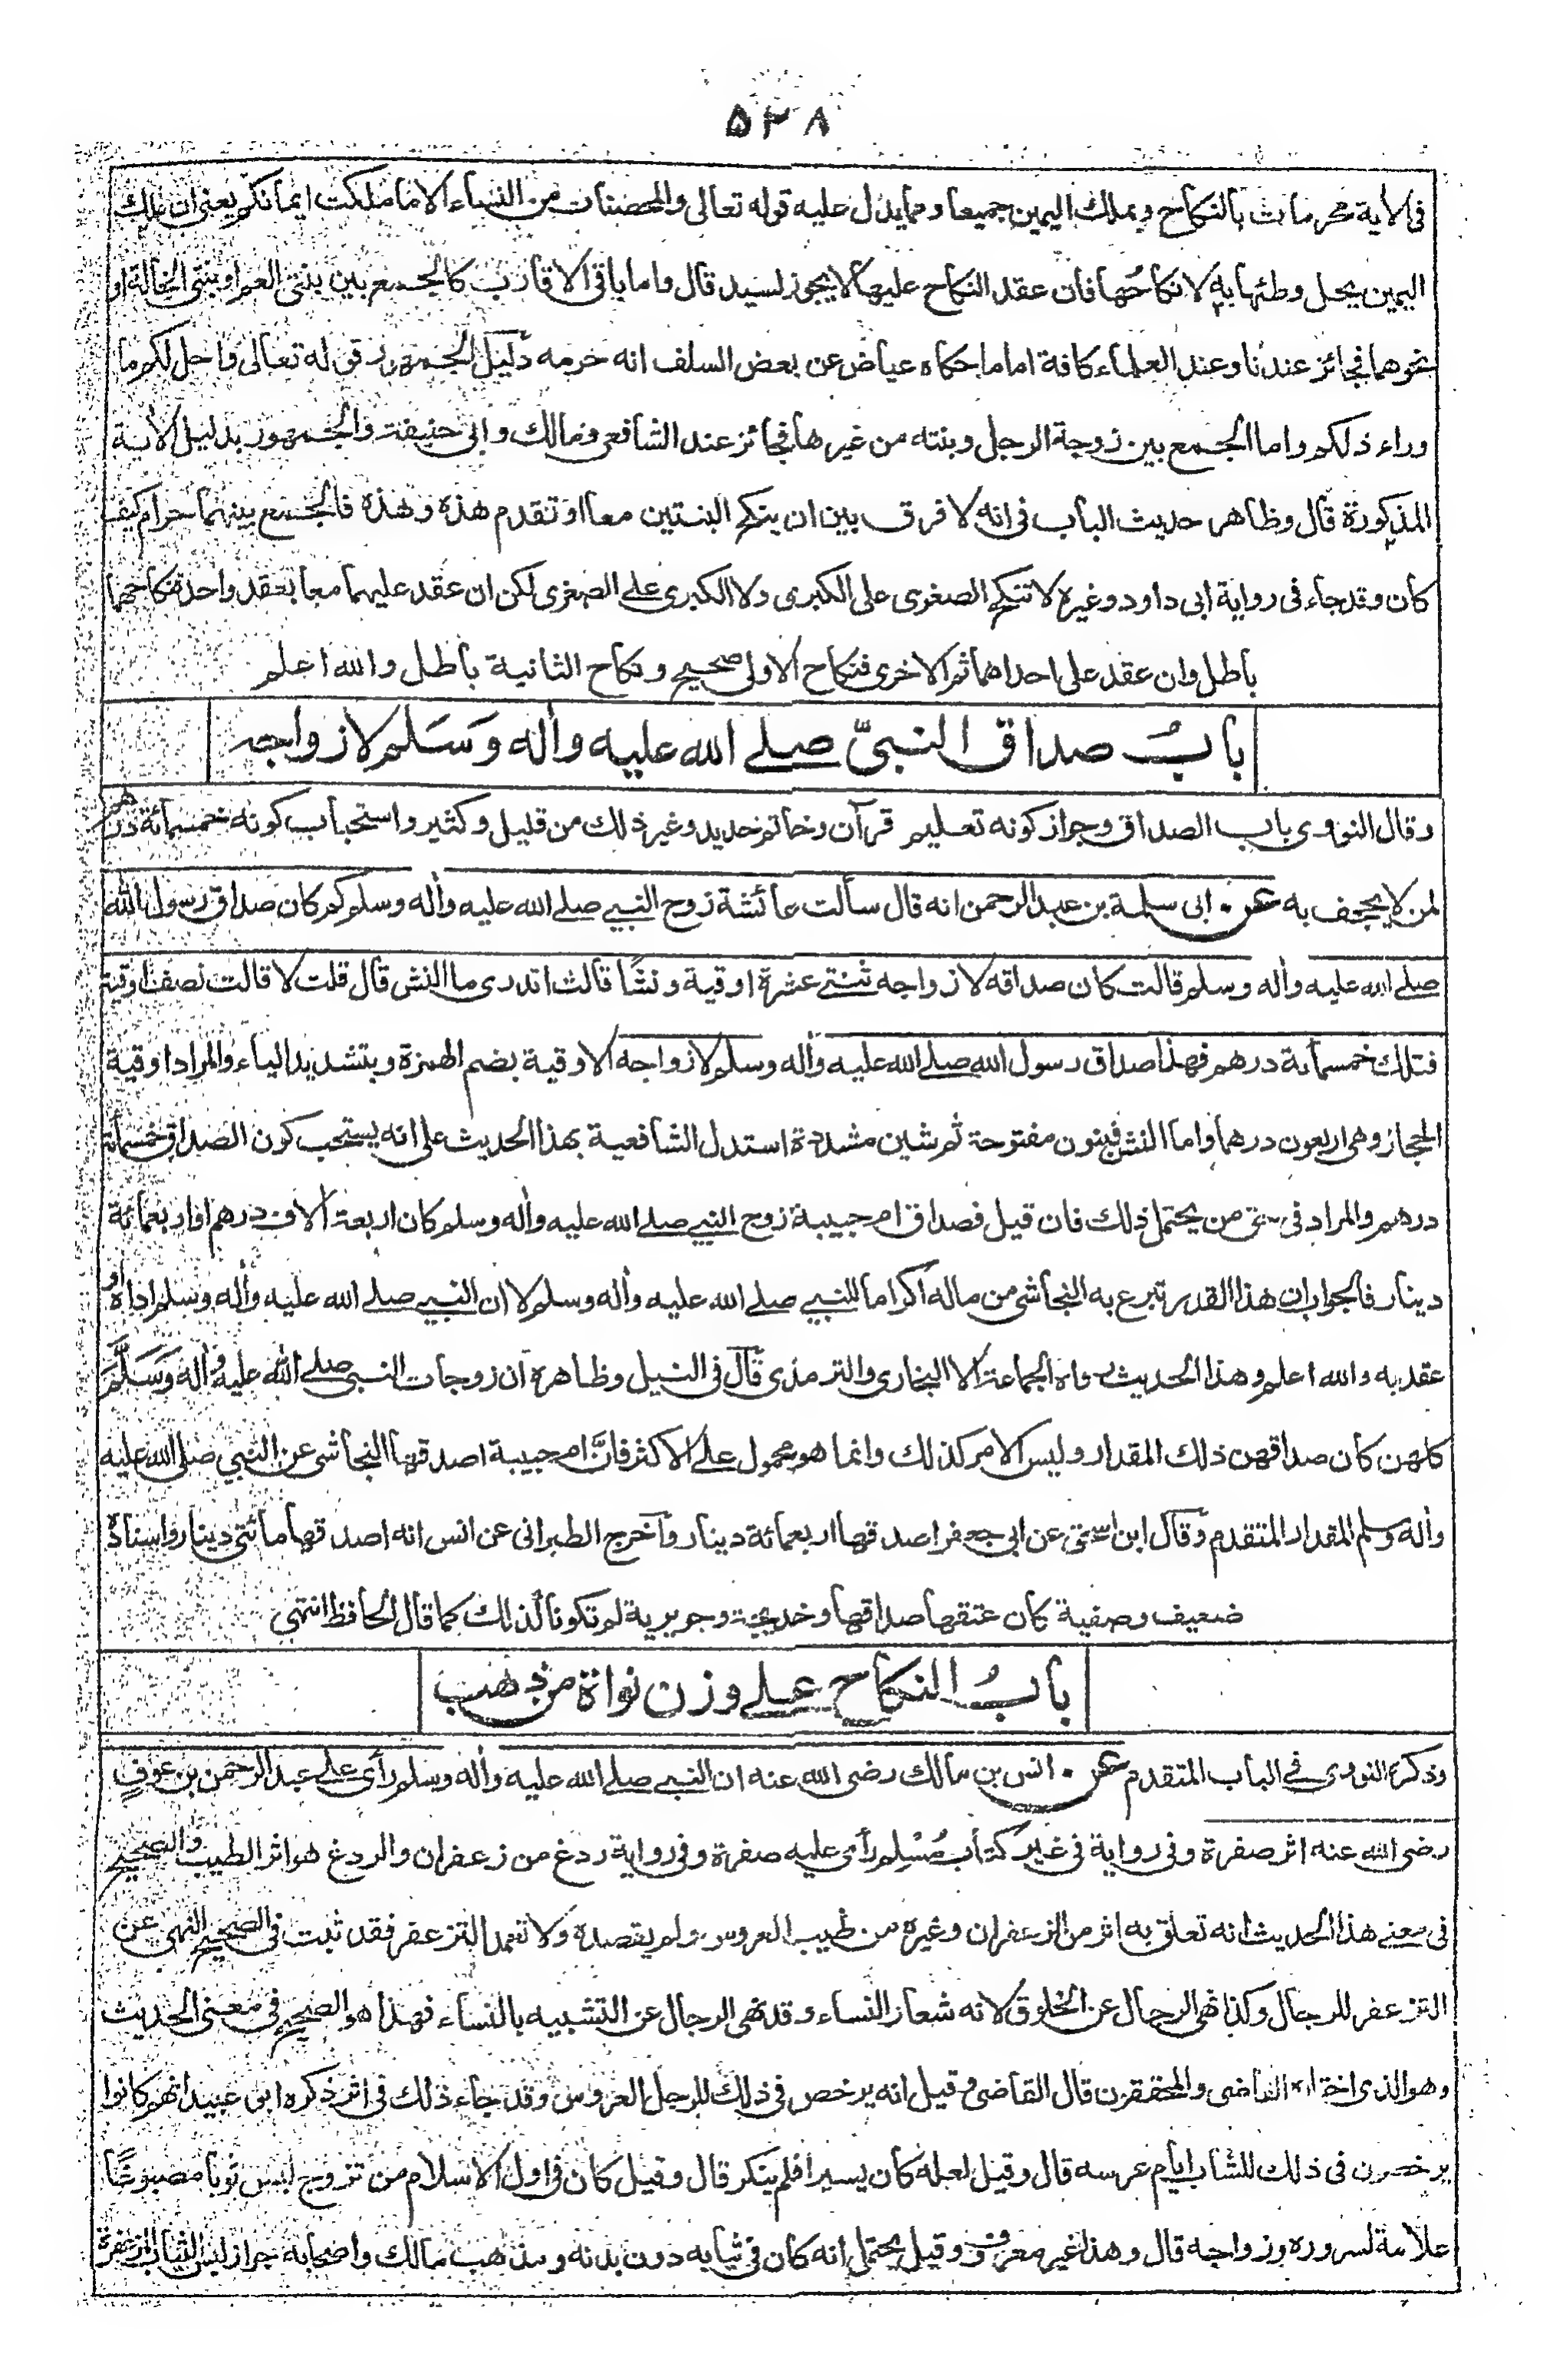 ۵۳۸
فى الأية محرمات بالنكاح وبملك اليمين جميعا ومما يدل عليه قوله تعالى والمحصنات من النساء الا ما ملكت ايمانكم يعنى ان ملك
اليمين يحل وطئها به لا نكاحُها فان عقد النكاح عليها لا يجوز لسيد قال واما باقى الاقارب كالجمع بين بنتى العم او بنتى الخالة او
نحوهما فجائز عندنا وعند العلماء كافة اما ما حكاه عياض عن بعض السلف انه حرمه دليل الجمهور قوله تعالى واحل لكم ما
وراء ذلكم واما الجمع بين زوجة الرجل وبنته من غيرها فجائز عند الشافعى ومالك وابى حنيفة والجمهور بدليل الأية
المذكورة قال وظاهر حديث الباب فى انه لا فرق بين ان ينكح البنتين معا او تقدم هذه وهذه فالجمع بينهما حرام كيف
كان وقد جاء فى رواية ابى داود وغيره لا تنكح الصغرى على الكبرى ولا الكبرى على الصغرى لكن ان عقد عليهما معا بعقد واحد فنكاحهما
باطل وان عقد على احداهما ثم الاخرى فنكاح الاولى صحيح ونكاح الثانية باطل والله اعلم
بابُ صداق النبىّ صلى الله عليه وأله وَسَلم لازواجه
وقال النووى باب الصداق وجواز كونه تعليم قرآن وخاتم حديد وغير ذلك من قليل وكثير واستحباب كونه خمسمائة درهم
لمن لا يجحف به عن ابى سلمة بن عبد الرحمن انه قال سألت عائشة زوج النبى صلى الله عليه وأله وسلم كم كان صداق رسول الله
صلى الله عليه وأله وسلم قالت كان صداقه لازواجه ثنتى عشرة اوقية ونشًا قالت اتدرى ما النش قال قلت لا قالت نصف اوقية
فتلك خمسمأئة درهم فهذا صداق رسول الله صلى الله عليه وأله وسلم لازواجه الاوقية بضم الهمزة وبتشديد الياء والمراد اوقية
الحجاز وهى اربعون درهما واما النش فبنون مفتوحة ثم شين مشددة استدل الشافعية بهذا الحديث على انه يستحب كون الصداق خمسمأئة
درهم والمراد فى حق من يحتمل ذلك فان قيل فصداق ام حبيبة زوج النبى صلى الله عليه وأله وسلم كان اربعة ألاف درهم او اربعمائة
دينار فالجواب ان هذا القدر تبرع به النجاشى من ماله اكراما للنبى صلى الله عليه وأله وسلم لا ان النبى صلى الله عليه وأله وسلم اداه او
عقد به والله اعلم وهذا الحديث رواه الجماعة الا البخارى والترمذى قال فى النيل وظاهره ان زوجات النبى صلى الله عليه وأله وَسَلَّمَ
كلهن كان صداقهن ذلك المقدار وليس الامر كذلك وانما هو محمول على الاكثر فانَّ ام حبيبة اصدقها النجاشى عن النبى صلى الله عليه
وأله وسلم المقدار المتقدم وقال ابن اسحق عن ابى جعفر اصدقها اربعمائة دينار وأخرج الطبرانى عن انس انه اصدقها مائتى دينار واسناده
ضعيف وصفية كان عتقها صداقها وخديجة وجويرية لم تكونا كذلك كما قال الحافظ انتهى
بابُ النكاح على وزن نواة من ذهب
وذكره النووى فى الباب المتقدم عن انس بن مالك رضى الله عنه ان النبى صلى الله عليه وأله وسلم رأى على عبد الرحمن بن عوفٍ
رضى الله عنه اثر صفرة وفى رواية فى غير كتاب مُسْلِم رأى عليه صفرة وفى رواية ردغ من زعفران والردغ هو اثر الطيب والصحيح
فى معنى هذا الحديث انه تعلق به اثر من الزعفران وغيره من طيب العروس ولم يقصده ولا تعمد التزعفر فقد ثبت فى الصحيح النهى عن
التزعفر للرجال وكذا نهى الرجال عن الخلوق لانه شعار النساء وقد نهى الرجال عن التشبيه بالنساء فهذا هو الصحيح فى معنى الحديث
وهو الذى اختاره القاضى والمحققون قال القاضى وقيل انه يرخص فى ذلك للرجل العروس وقد جاء ذلك فى اثر ذكره ابو عبيد انهم كانوا
يرخصون فى ذلك للشاب ايام عرسه قال وقيل لعله كان يسيرا فلم ينكر قال وقيل كان فى اول الاسلام من تزوج لبس ثوبا مصبوغًا
علامة لسروره وزواجه قال وهذا غير معروف وقيل يحتمل انه كان فى ثيابه دون بدنه ومذهب مالك واصحابه جواز لبس الثياب المزعفرة